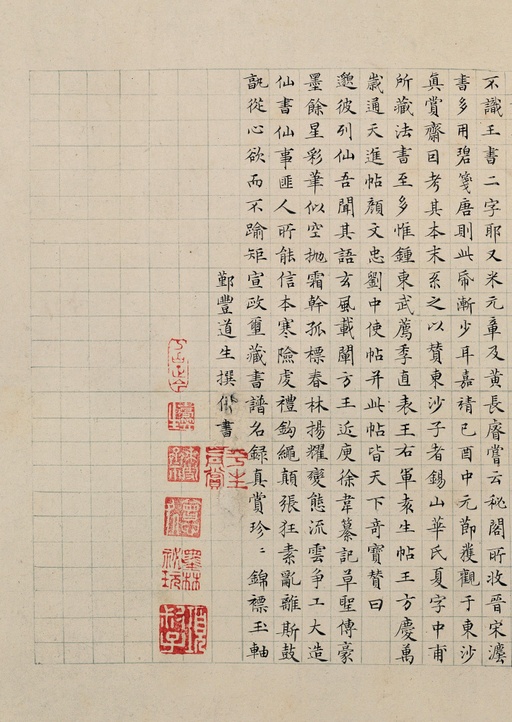 不識王書二字耶又米元章及黄長睿嘗云秘閣所收晉宋灋
書多用碧箋唐則此帋漸少耳嘉靖己酉中元節獲觀于東沙
真賞齋因考其本末系之以贊東沙子者錫山華氏夏字中甫
所藏法書至多惟鍾東武薦季直表王右軍袁生帖王方慶萬
嵗通天進帖顔文忠劉中使帖并此帖皆天下竒寶贊曰
邈彼列仙吾聞其語玄風載闡方王近庾徐韋纂記草聖傳豪
墨餘星彩筆似空抛霜幹孤標春林揚耀變態流雲争工大造
仙書仙事匪人所能信本寒險虔禮鈎繩顛張狂素亂離斯鼓
孰從心欲而不踰矩宣政璽藏書譜名録真賞珍〻錦褾玉軸
鄞豐道生撰併書
墨林祕玩